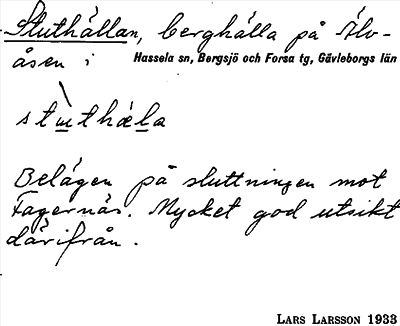 Sluthällan, berghälla på Älv-
åsen i Hassela sn, Bergsjö och Forsa tg, Gävleborgs län
stuthæla
Belägen på sluttningen mot
Fagernäs. Mycket god utsikt
därifrån.
LARS LARSSON 1933